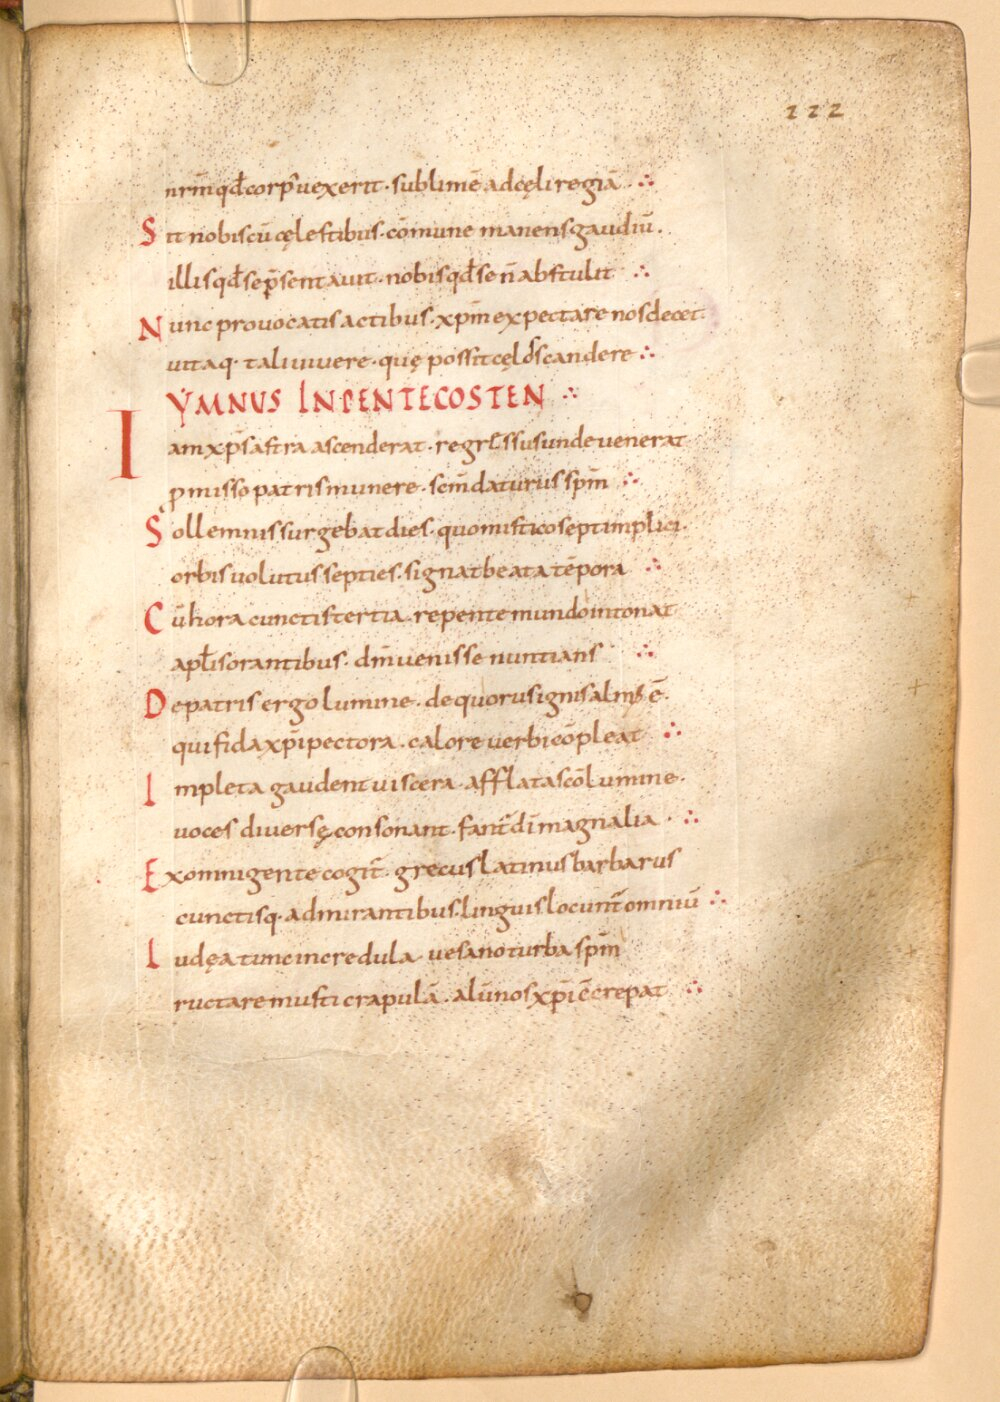 222
nr̄m qđ corp᷒ uexerit · sublimē ad cęli regiā ·
Sit nobiscū cęlestibus · cōmune manens gaudiū ·
illis qđ se p̄sentauit · nobis qđ se n̄ abstulit
Nunc prouocatis actibus · xp̄m expectare nos decet ·
uitaq· tali uiuere · quę possit cęlos scandere
YMNUS IN PENTECOSTEN
Iam xp̄s astra ascenderat · regressus unde uenerat
ꝓmisso patris munere · sc̄m daturus sp̄m
Sollemnis surgebat dies · quo mistico septimplici ·
orbis uolutus septies · signat beata tēpora
Cū hora cunctis tertia · repente mundo intonat
apłis orantibus · dm̄ uenisse nuntians
De patris ergo lumine · decorus ignis almus ē ·
qui fida xp̄i pectora · calore uerbi cōpleat
Impleta gaudent uiscera · afflata sc̄o lumine ·
uoces diuersę consonant · fant᷒ dī magnalia ·
Ex omni gente cogit᷒ · grecus latinus barbarus
cunctisq· admirantibus · linguis locunt᷒ omniū
Iudęa tunc incredula uesano turba sp̄m
ructare musti crapulā · alūnos xp̄i cc̄repat